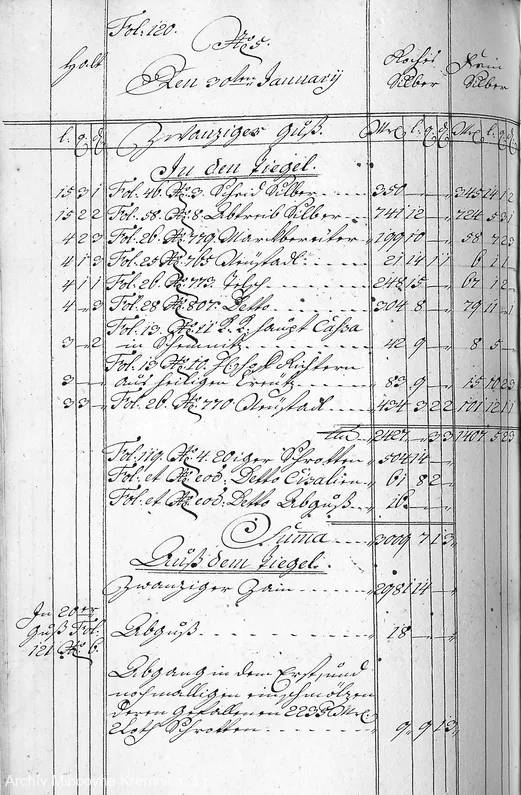 Fol: 120.
No 5.
Halt
Den 30ten January
Rohes Silber
Fein Silber
l. q. d.
Zwanziger Guß.
Mrk l. q. d. Mrk l. q. d.
In den Tiegel.
15 3 1 Fol: 46. No 3. Scheid Silber 350 — — 345 14 1 2
15 2 2 Fol: 58. No 8. Abtreib Silber 741 12 — 724 5 3 1
4 2 3 Fol: 26. No 779. Marckbereiter 199 10 — 58 7 2 3
4 1 3 Fol: 25 No 765 Neüstadl 21 14 1 1 6 1 1
4 1 1 Fol: 26 No 773. 248 15 — 67 12
4 — 3 Fol: 28 No 807. Detto 304 8 — 79 11 — 1
Fol: 13. No 11 haupt Cassa
3 — 2 in Schemnitz 42 9 — 8 5
Fol: 13 No 10. Richtern
3 — aus heiligen Creütz 83 9 — 15 10 2 3
3 3 Fol: 26. No 770 Neüstadl 434 3 2 2 101 12 1 1
2427 — 3 3 1407 5 2 3
Fol: 119. No 4. 20iger Schrotten 504 14
Fol: et No eod: Detto Cisalien 61 8 2
Fol: et No eod: Detto Abguß 16
Summa 3009 7 1 3
Auß dem Tiegel.
Zwanziger Zain 2981 14
In 20er
Guß Fol:
121 No 6.
Abguß 18
Abgang in dem Erst, und
nochmalligen einschmölzen
deren gefallenen 2235 Mrk
Loth Schrotten 9 9 1 3
Archív Mincovne Kremnica